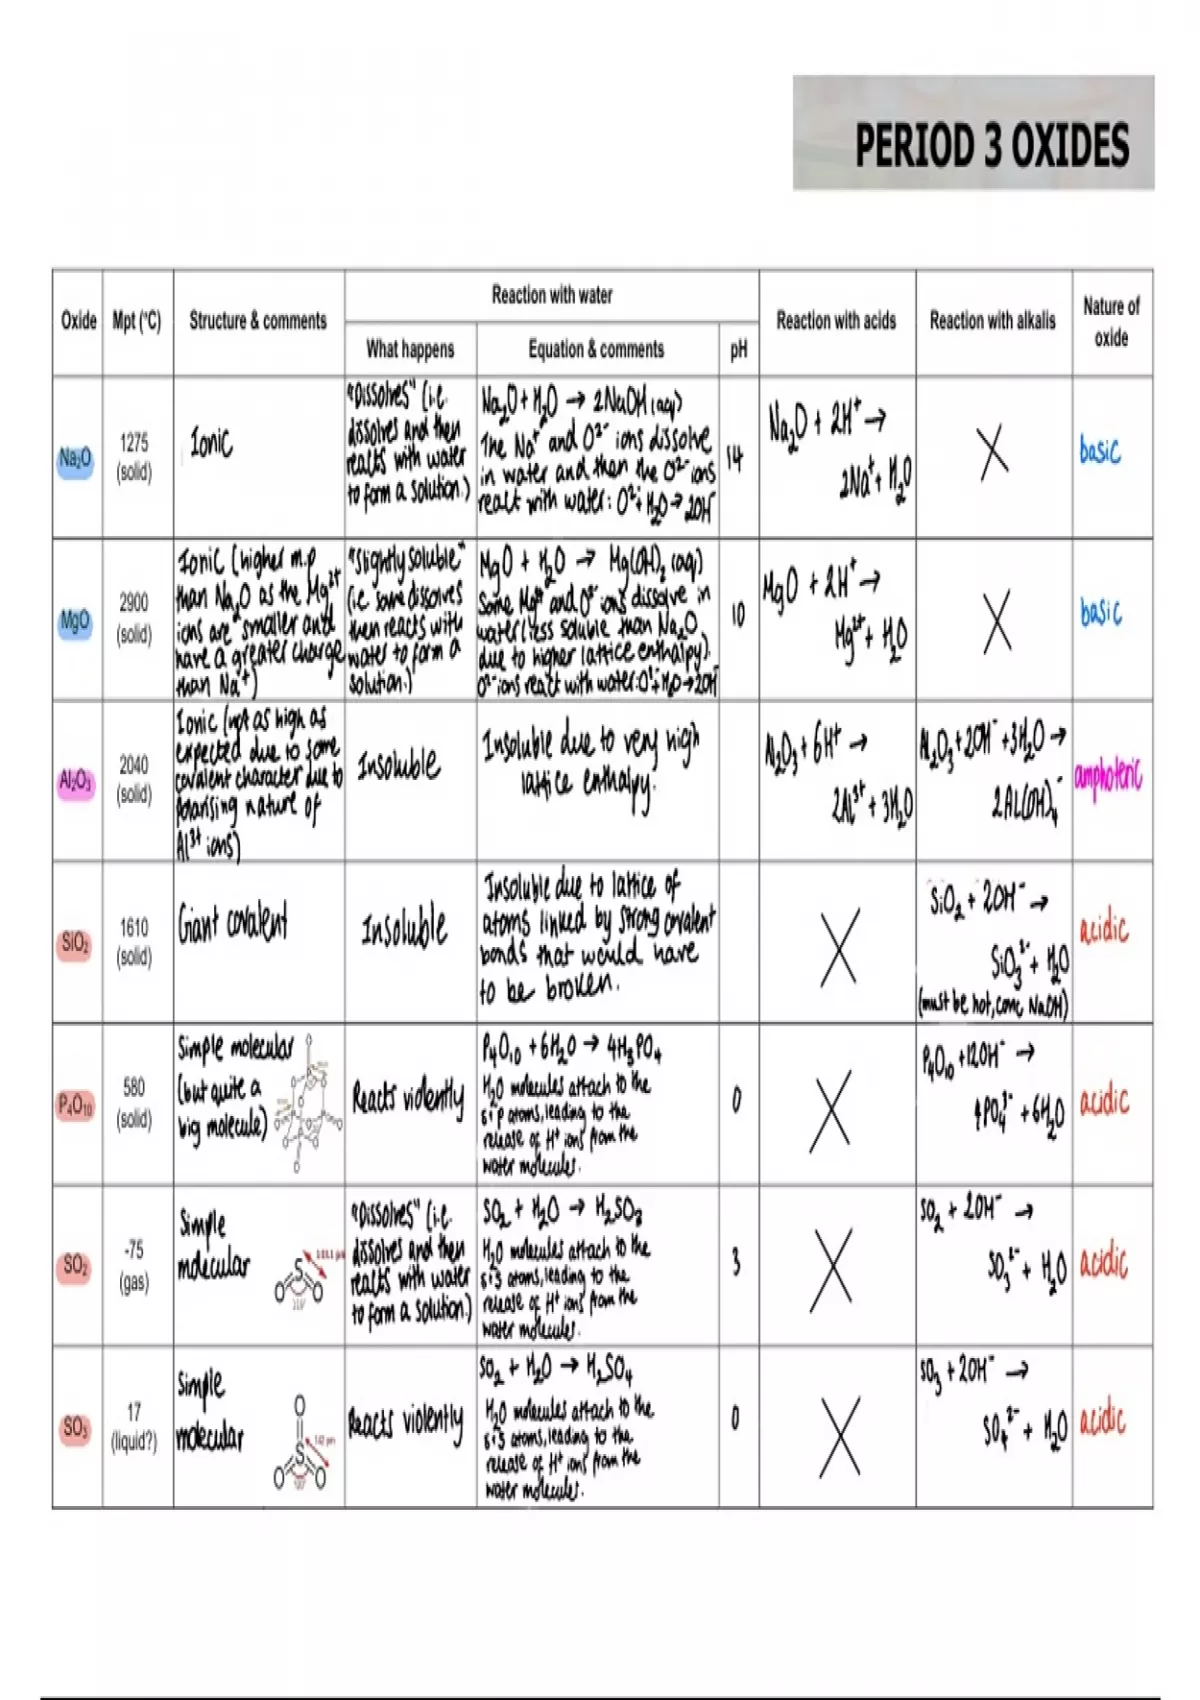 PERIOD 3 OXIDES
Oxide
Mpt (°C)
Structure & comments
Reaction with water
What happens
Equation & comments
pH
Reaction with acids
Reaction with alkalis
Nature of
oxide
Na₂O
1275
(solid)
Ionic
"Dissolves" (i.e.
dissolves and then
reacts with water
to form a solution.)
Na₂O + H₂O → 2NaOH (aq)
The Na⁺ and O²⁻ ions dissolve
in water and then the O²⁻ ions
react with water: O²⁻ + H₂O → 2OH⁻
14
Na₂O + 2H⁺ →
2Na⁺ + H₂O
basic
MgO
2900
(solid)
Ionic (higher m.p
than Na₂O as the Mg²⁺
ions are smaller and
have a greater charge
than Na⁺)
"Slightly soluble"
(i.e. some dissolves
then reacts with
water to form a
solution.)
MgO + H₂O → Mg(OH)₂ (aq)
Some Mg²⁺ and O²⁻ ions dissolve in
water (less soluble than Na₂O
due to higher lattice enthalpy).
O²⁻ ions react with water: O²⁻ + H₂O → 2OH⁻
10
MgO + 2H⁺ →
Mg²⁺ + H₂O
basic
Al₂O₃
2040
(solid)
Ionic (not as high as
expected due to some
covalent character due to
polarising nature of
Al³⁺ ions)
Insoluble
Insoluble due to very high
lattice enthalpy.
Al₂O₃ + 6H⁺ →
2Al³⁺ + 3H₂O
Al₂O₃ + 2OH⁻ + 3H₂O →
2Al(OH)₄⁻
amphoteric
SiO₂
1610
(solid)
Giant covalent
Insoluble
Insoluble due to lattice of
atoms linked by strong covalent
bonds that would have
to be broken.
SiO₂ + 2OH⁻ →
SiO₃²⁻ + H₂O
(must be hot, conc NaOH)
acidic
P₄O₁₀
580
(solid)
Simple molecular
(but quite a
big molecule)
Reacts violently
P₄O₁₀ + 6H₂O → 4H₃PO₄
H₂O molecules attach to the
δ+ P atoms, leading to the
release of H⁺ ions from the
water molecules.
0
P₄O₁₀ + 12OH⁻ →
4PO₄³⁻ + 6H₂O
acidic
SO₂
-75
(gas)
Simple
molecular
S
O O
"Dissolves" (i.e.
dissolves and then
reacts with water
to form a solution.)
SO₂ + H₂O → H₂SO₃
H₂O molecules attach to the
δ+ S atoms, leading to the
release of H⁺ ions from the
water molecules.
3
SO₂ + 2OH⁻ →
SO₃²⁻ + H₂O
acidic
SO₃
17
(liquid?)
Simple
molecular
O
S
O O
Reacts violently
SO₂ + H₂O → H₂SO₄
H₂O molecules attach to the
δ+ S atoms, leading to the
release of H⁺ ions from the
water molecules.
0
SO₃ + 2OH⁻ →
SO₄²⁻ + H₂O
acidic